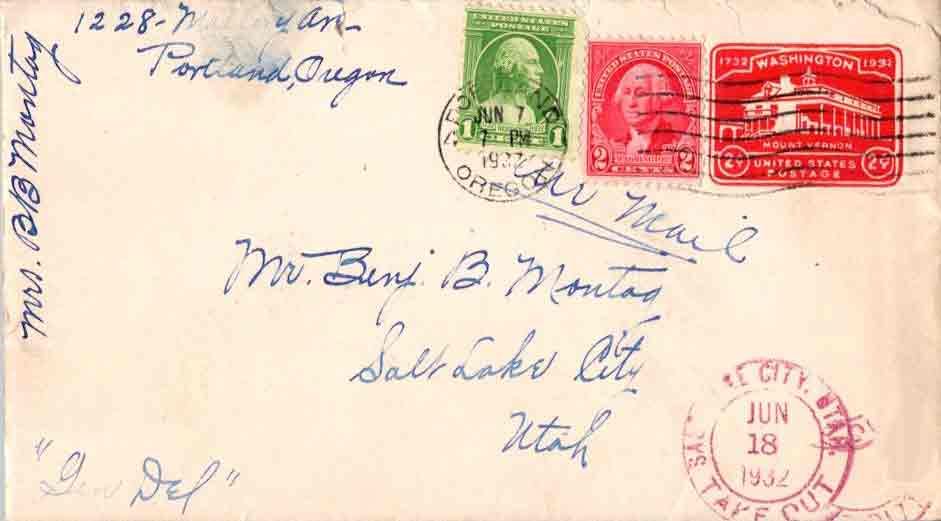 1228 - Mallory Av-
Portland, Oregon
Mrs. B B Montag
UNITED STATES
POSTAGE
1 1
UNITED STATES POSTAGE
2 2
WASHINGTON
CENTS
1732 WASHINGTON 1932
MOUNT VERNON
2¢ UNITED STATES 2¢
POSTAGE
JUN 7
7 PM
1932
OREGON
Air Mail
Mr. Benj. B. Montag
Salt Lake City
Utah
"Gen Del"
SALT LAKE CITY, UTAH.
JUN
18
1932
TAKE OUT